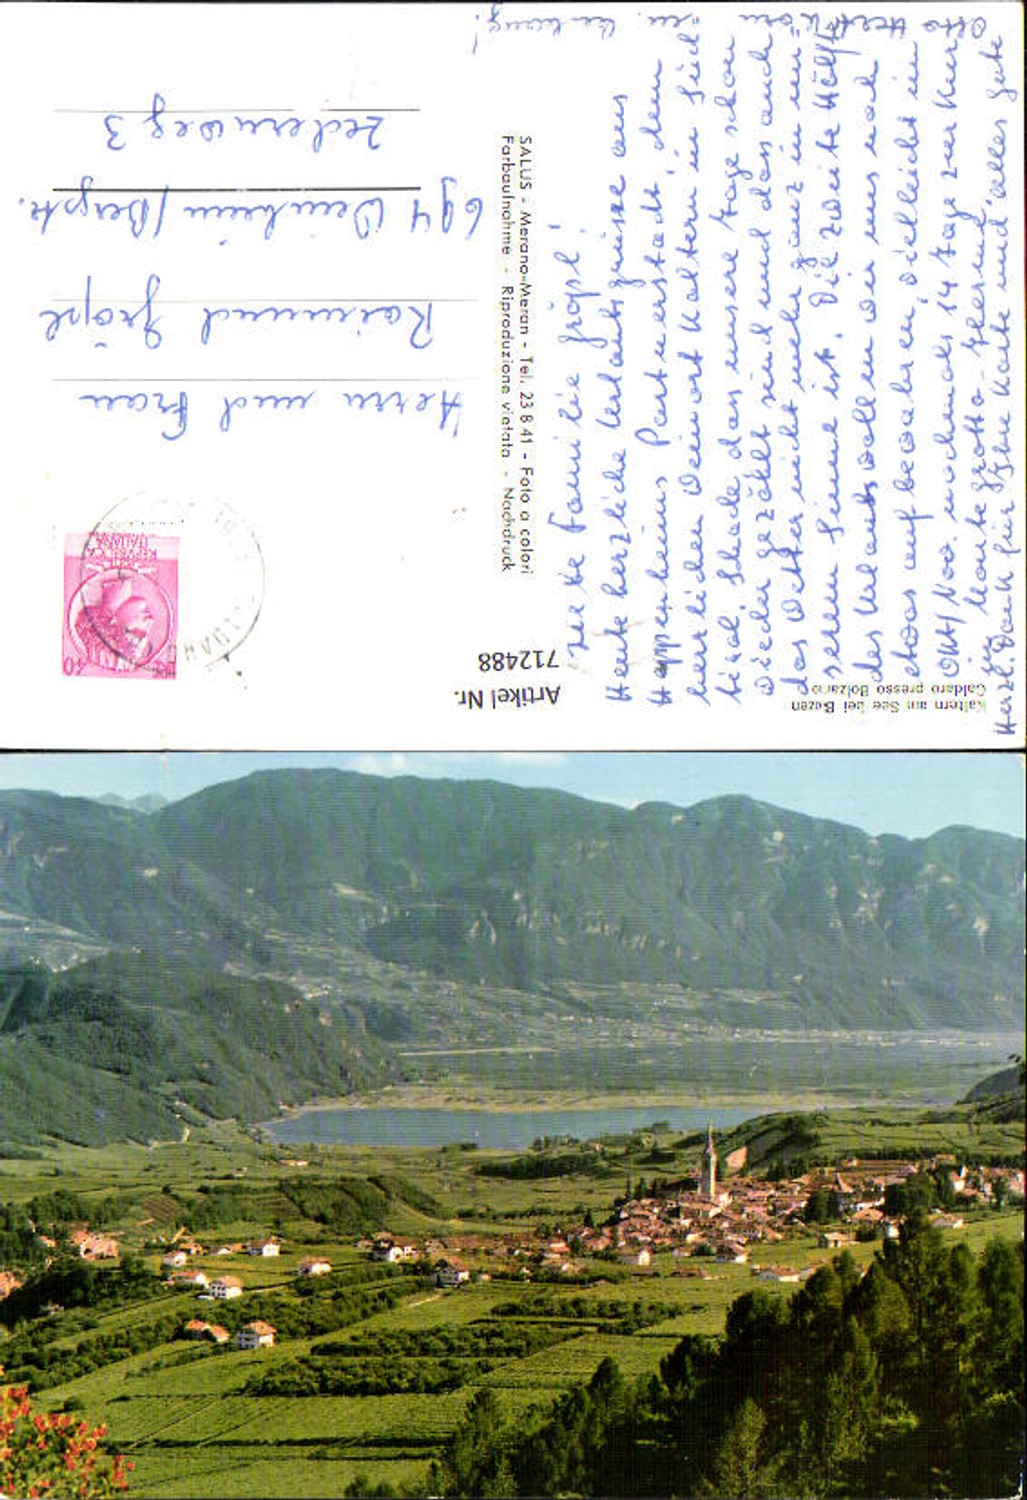 Kaltern am See bei Bozen
Caldaro presso Bolzano
Artikel Nr.
712488
SALUS - Merano-Meran - Tel. 23 8 41 - Foto a colori
Farbaufnahme - Riproduzione vietata - Nachdruck
REPUBBLICA
ITALIANA
Herrn und Frau
Raimund Gröpl
694 Weinheim/Bergstr.
Zedernweg 3
Liebe Familie Gröpl!
Heute herzliche Urlaubsgrüsse aus
Happenheims Partnerstadt, dem
herrlichen Weinort Kaltern in Süd-
tirol. Schade dass unsere Tage schon
wieder gezählt sind und dass auch
das Wetter nicht mehr ganz in un-
serem Sinne ist. Die zweite Hälfte
des Urlaubs wollen wir uns noch
etwas aufbewahren, vielleicht im
Okt/Nov. nochmals 14 Tage zur Kur
in Monte Grotto-Therme,
Herzl. Dank für Ihre Karte und alles Gute
Otto